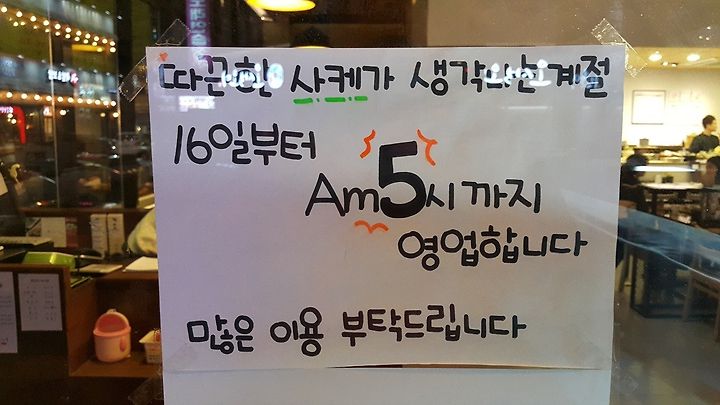 따끈한 사케가 생각나는계절
16일부터
Am5시까지
영업합니다
많은 이용 부탁드립니다